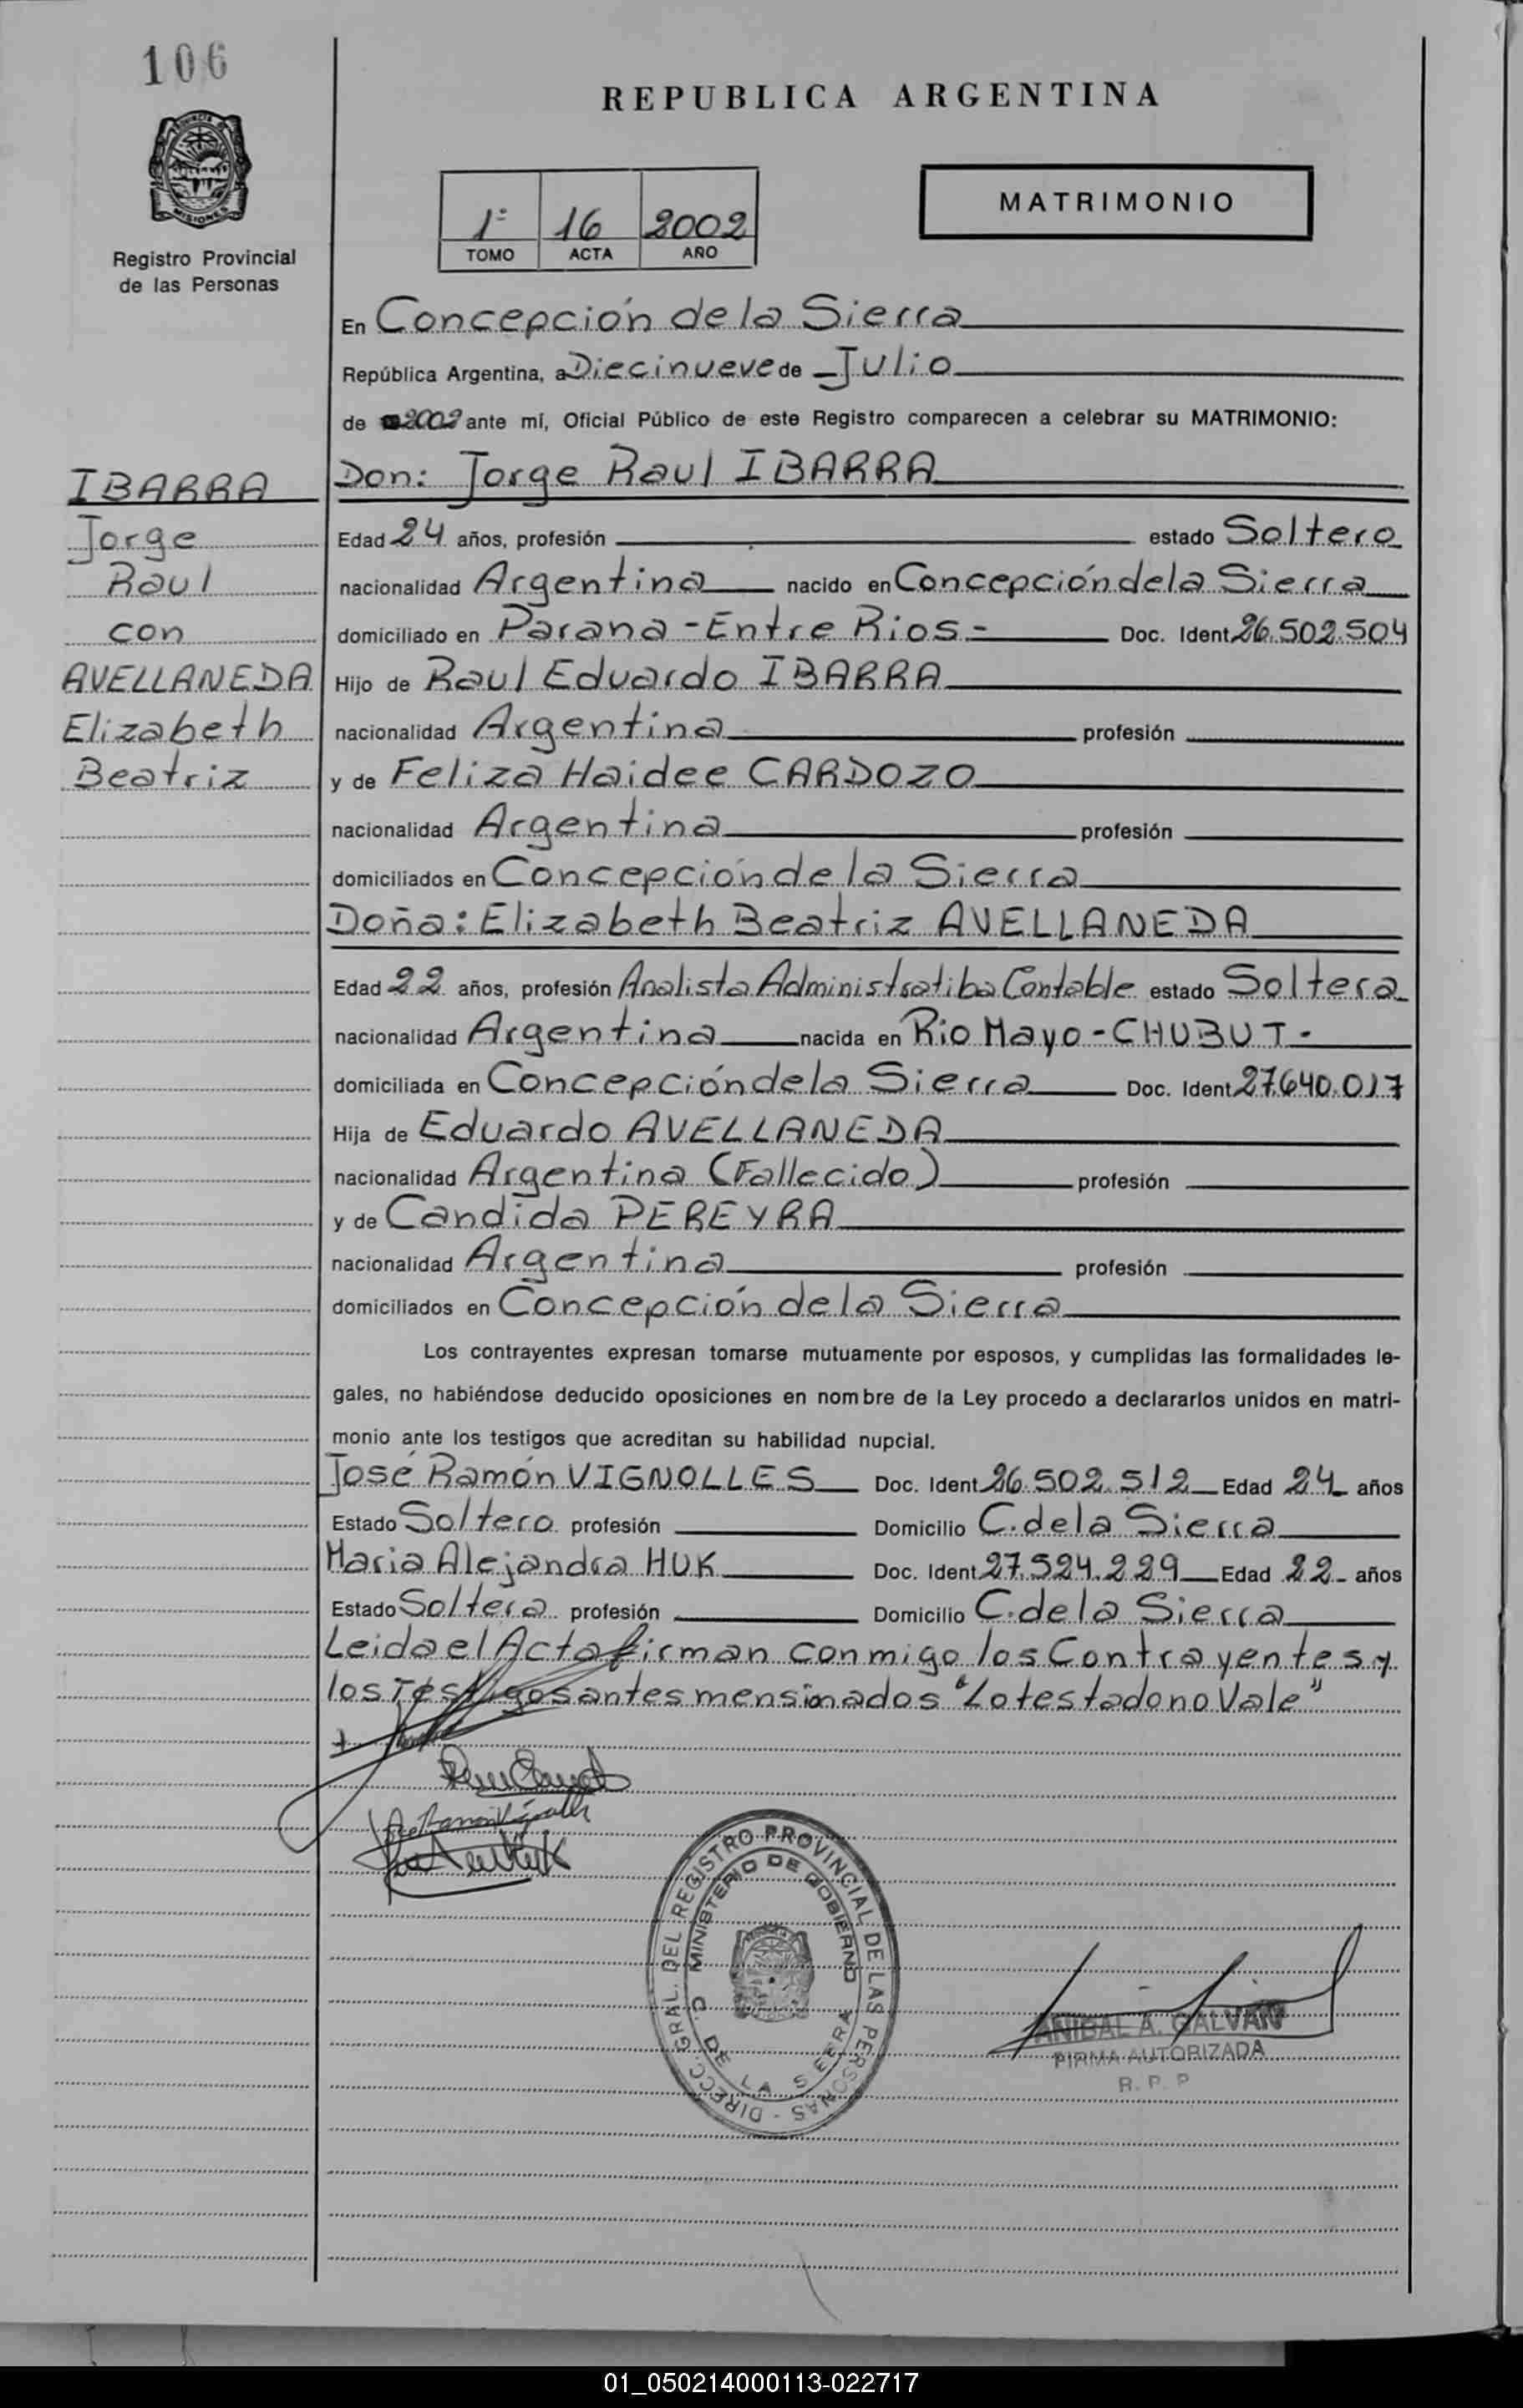 106
REPUBLICA ARGENTINA
MISIONES
Registro Provincial
de las Personas
1º 16 2002
TOMO ACTA AÑO
MATRIMONIO
En Concepción de la Sierra
República Argentina, a Diecinueve de Julio
de 2002 ante mí, Oficial Público de este Registro comparecen a celebrar su MATRIMONIO:
IBARRA
Jorge
Raul
con
AVELLANEDA
Elizabeth
Beatriz
Don: Jorge Raul IBARRA
Edad 24 años, profesión estado Soltero
nacionalidad Argentina nacido en Concepción de la Sierra
domiciliado en Parana - Entre Rios - Doc. Ident 26.502.504
Hijo de Raul Eduardo IBARRA
nacionalidad Argentina profesión
y de Feliza Haidee CARDOZO
nacionalidad Argentina profesión
domiciliados en Concepción de la Sierra
Doña: Elizabeth Beatriz AVELLANEDA
Edad 22 años, profesión Analista Administratiba Contable estado Soltera
nacionalidad Argentina nacida en Rio Mayo - CHUBUT -
domiciliada en Concepción de la Sierra Doc. Ident 27.640.017
Hija de Eduardo AVELLANEDA
nacionalidad Argentina (Fallecido) profesión
y de Candida PEREYRA
nacionalidad Argentina profesión
domiciliados en Concepción de la Sierra
Los contrayentes expresan tomarse mutuamente por esposos, y cumplidas las formalidades le-
gales, no habiéndose deducido oposiciones en nombre de la Ley procedo a declararlos unidos en matri-
monio ante los testigos que acreditan su habilidad nupcial.
José Ramón VIGNOLLES Doc. Ident 26.502.512 Edad 24 años
Estado Soltero profesión Domicilio C. de la Sierra
Maria Alejandra HUK Doc. Ident 27.524.229 Edad 22 años
Estado Soltera profesión Domicilio C. de la Sierra
Leida el Acta firman conmigo los Contrayentes y
los Testigos antes mensionados "Lo testado no Vale"
DIRECC. GRAL. DEL REGISTRO PROVINCIAL DE LAS PERSONAS -
MINISTERIO DE GOBIERNO
C. DE LA SIERRA
ANIBAL A. GALVAN
FIRMA AUTORIZADA
R. P. P
01_050214000113-022717